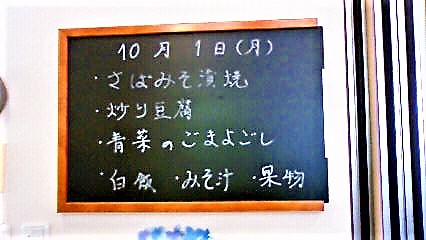 10月1日(月)
・さばみそ漬焼
・炒り豆腐
・青菜のごまよごし
・白飯 ・みそ汁 ・果物